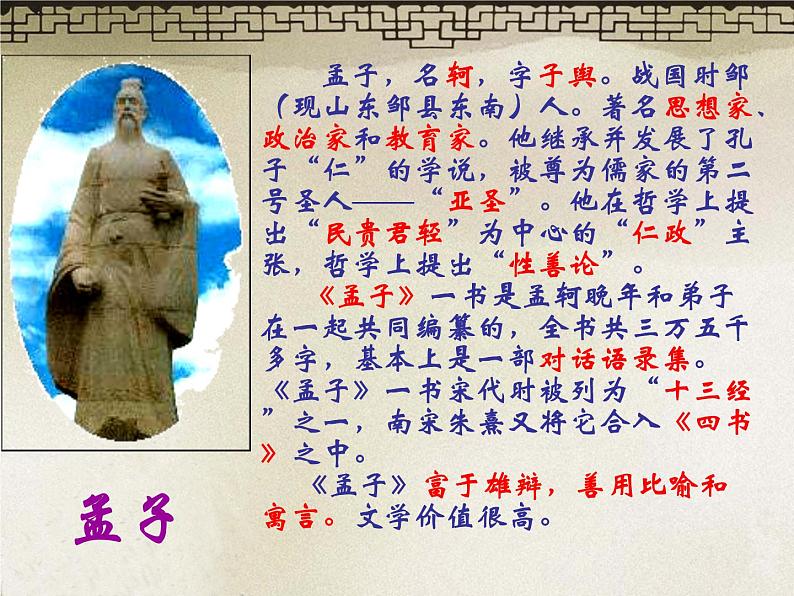 孟子，名轲，字子舆。战国时邹
（现山东邹县东南）人。著名思想家、
政治家和教育家。他继承并发展了孔
子“仁”的学说，被尊为儒家的第二
号圣人——“亚圣”。他在哲学上提
出“民贵君轻”为中心的“仁政”主
张，哲学上提出“性善论”。
《孟子》一书是孟轲晚年和弟子
在一起共同编纂的，全书共三万五千
多字，基本上是一部对话语录集。
《孟子》一书宋代时被列为“十三经
”之一，南宋朱熹又将它合入《四书
》之中。
《孟子》富于雄辩，善用比喻和
寓言。文学价值很高。
孟子